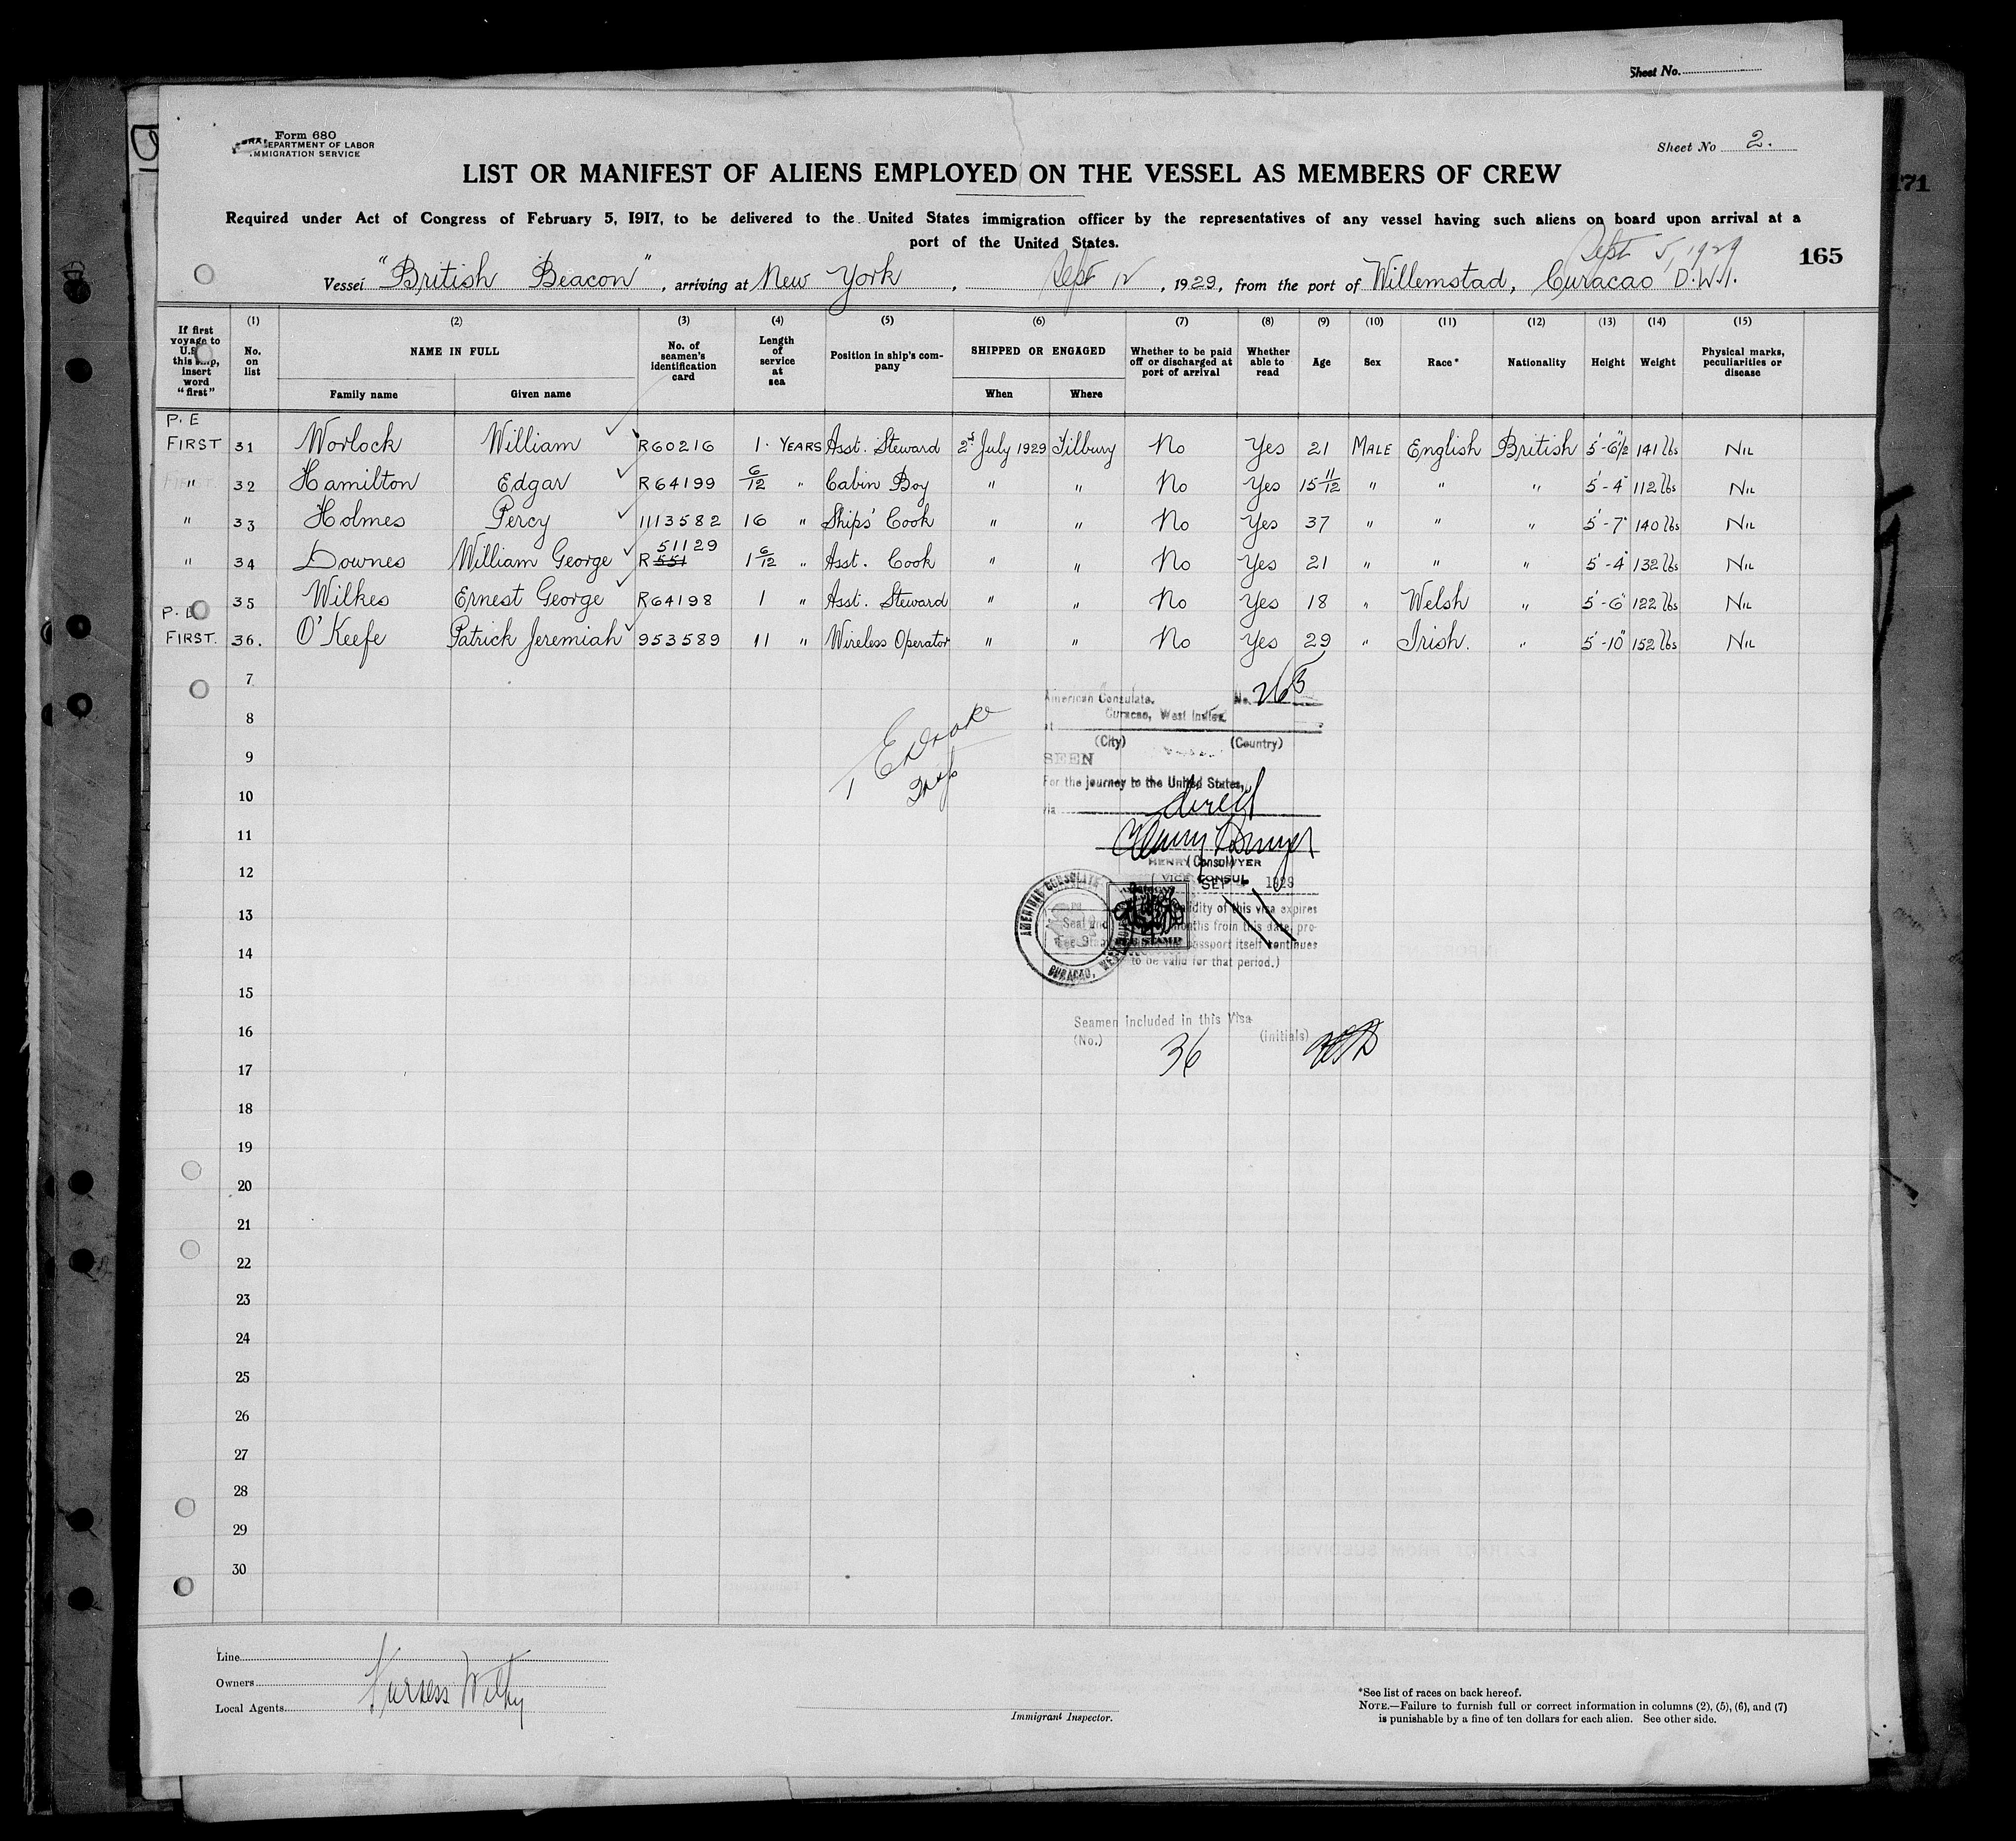 Sheet No.
Form 680
DEPARTMENT OF LABOR
IMMIGRATION SERVICE
Sheet No 2.
171
LIST OR MANIFEST OF ALIENS EMPLOYED ON THE VESSEL AS MEMBERS OF CREW
Required under Act of Congress of February 5, 1917, to be delivered to the United States immigration officer by the representatives of any vessel having such aliens on board upon arrival at a
port of the United States.
Sept 5, 1929
165
Vessel "British Beacon", arriving at New York, Sept 12, 1929, from the port of Willemstad, Curacao D.W.I.
If first voyage to U.S. this ship, insert word "first" (1) No. on list (2) NAME IN FULL Family name Given name (3) No. of seamen's identification card (4) Length of service at sea (5) Position in ship's company (6) SHIPPED OR ENGAGED When Where (7) Whether to be paid off or discharged at port of arrival (8) Whether able to read (9) Age (10) Sex (11) Race* (12) Nationality (13) Height (14) Weight (15) Physical marks, peculiarities or disease
P. E
FIRST 31 Worlock William R60216 1. YEARS Asst. Steward 2nd July 1929 Tilbury No Yes 21 MALE English British 5'-6½" 141 lbs NIL
" 32 Hamilton Edgar R64199 6/12 " Cabin Boy " " No Yes 15 11/12 " " " 5'-4" 112 lbs NIL
" 33 Holmes Percy 1113582 16 " Ships' Cook " " No Yes 37 " " " 5'-7" 140 lbs NIL
" 34 Downes William George R 551 51129 1 6/12 " Asst. Cook " " No Yes 21 " " " 5'-4" 132 lbs NIL
35 Wilkes Ernest George R64198 1 " Asst. Steward " " No Yes 18 " Welsh " 5'-6" 122 lbs NIL
P. E
FIRST. 36. O'Keefe Patrick Jeremiah 953589 11 " Wireless Operator " " No Yes 29 " Irish. " 5'-10" 152 lbs NIL
7
8
9
10
11
12
13
14
15
16
17
18
19
20
21
22
23
24
25
26
27
28
29
30
E Drake
Insp
American Consulate, No. 263
Curacao, West Indies.
at
(City) (Country)
SEEN
For the journey to the United States,
via direct
HENRY (Consul) WYER
(VICE CONSUL
SEP 1929
validity of this visa expires
months from this date, pro-
passport itself continues
to be valid for that period.)
AMERICAN CONSULATE
CURACAO, WEST
Seal and
Fee Stamp
FEE STAMP
Seamen included in this Visa
(No.) 36 (initials)
Line
Owners
Local Agents Furness Withy
Immigrant Inspector.
*See list of races on back hereof.
NOTE.—Failure to furnish full or correct information in columns (2), (5), (6), and (7)
is punishable by a fine of ten dollars for each alien. See other side.